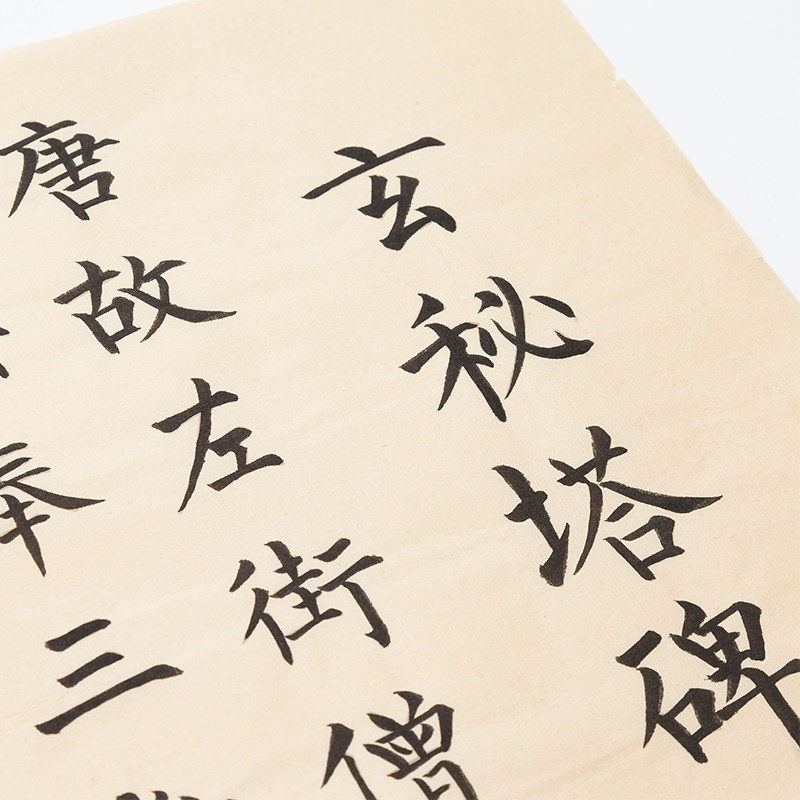 玄秘塔碑
唐故左街僧
奉三